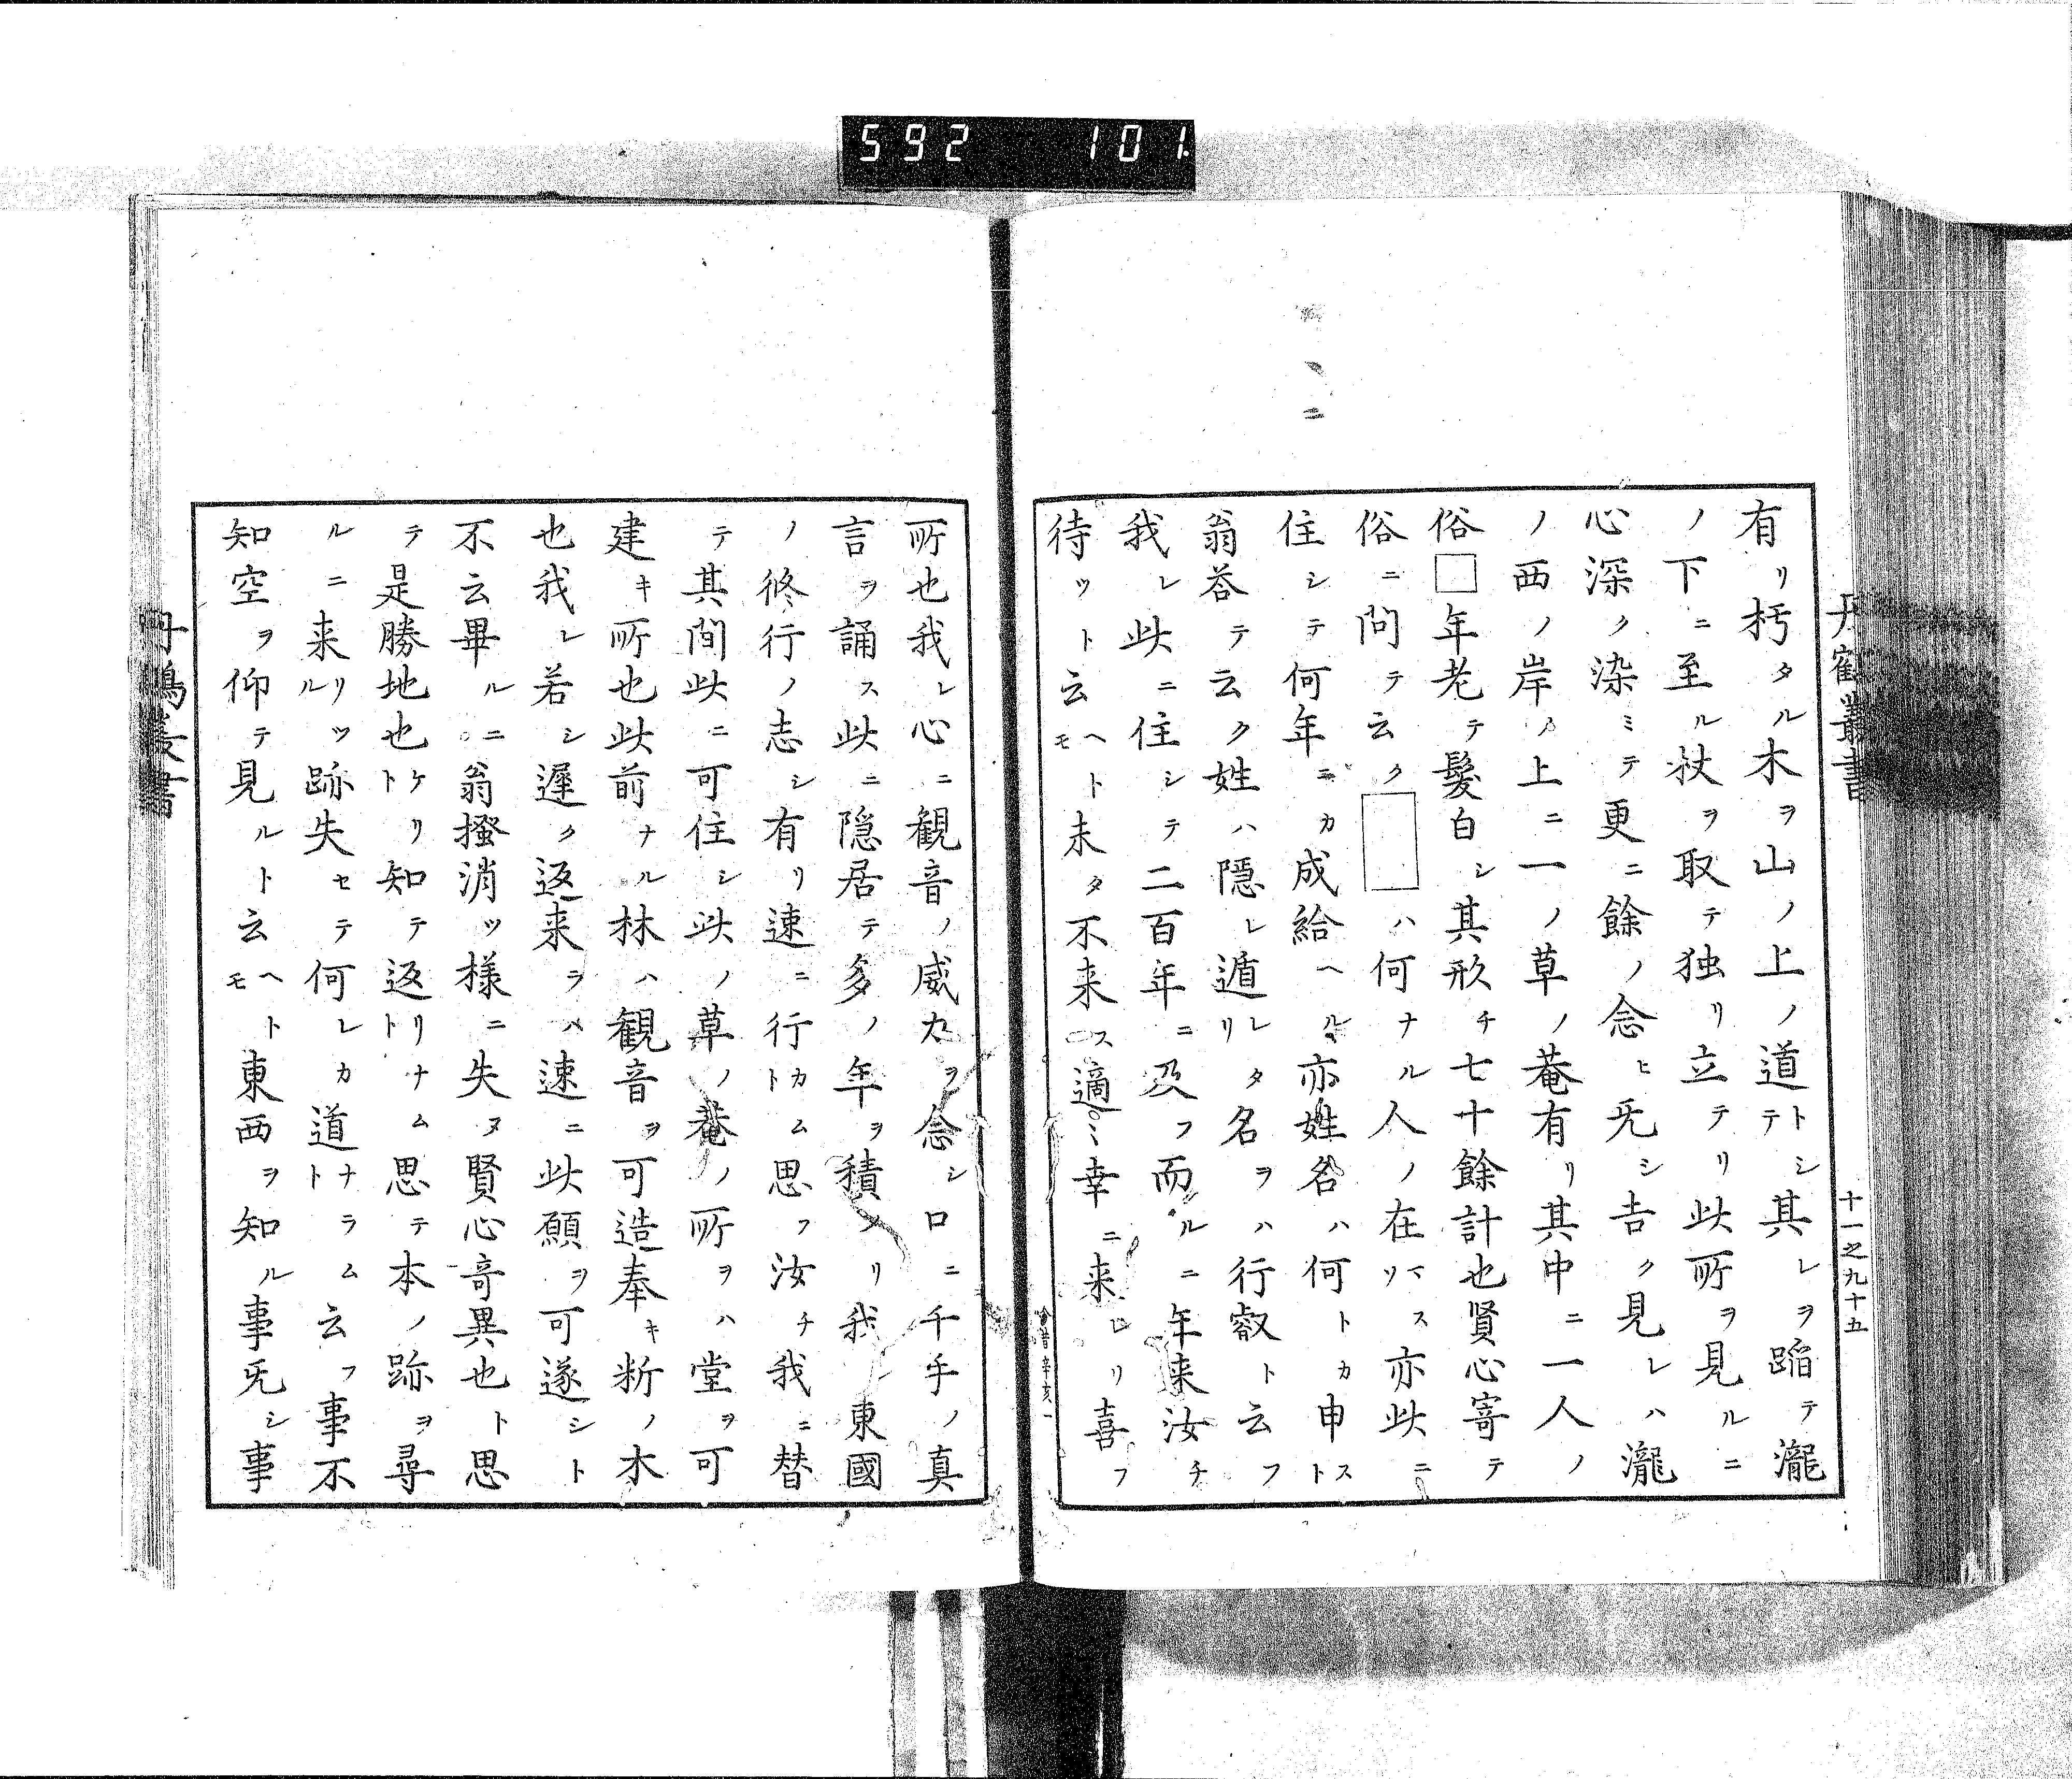 592 101.
丹鶴叢書
十一之九十五
有リ朽タル木ヲ山ノ上ノ道トシテ其レヲ蹈テ瀧
ノ下ニ至ル杖ヲ取テ独リ立テリ此所ヲ見ルニ
心深ク染ミテ更ニ餘ノ念ヒ旡シ吉ク見レハ瀧
ノ西ノ岸ノ上ニ一ノ草ノ菴有リ其中ニ一人ノ
俗□年老テ髪白シ其形チ七十餘計也賢心寄テ
俗ニ問テ云ク□ハ何ナル人ノ在マスリ亦此ニ
住シテ何年ニカ成給ヘル亦姓名ハ何トカ申スト
翁荅テ云ク姓ハ隱レ遁レタリ名ヲハ行叡ト云フ
我レ此ニ住シテ二百年ニ及フ而ルニ年来汝チ
待ツト云ヘトモ未タ不来ス適〻幸ニ来レリ喜フ
所也我レ心ニ観音ノ威力ヲ念シ口ニ千手ノ真
言ヲ誦ス此ニ隠居テ多ノ年ヲ積メリ我レ東國
ノ修行ノ志シ有リ速ニ行カムト思フ汝チ我ニ替
テ其間此ニ可住シ此ノ草ノ菴ノ所ヲハ堂ヲ可
建キ所也此前ナル林ハ観音ヲ可造奉キ断ノ木
也我レ若シ遲ク返来ラハ速ニ此願ヲ可遂シト
不云畢ルニ翁搔消ツ様ニ失ヌ賢心奇異也ト思
テ是勝地也ケリト知テ返リナムト思テ本ノ跡ヲ尋
ルニ来リツル跡失セテ何レカ道ナラムト云フ事不
知空ヲ仰テ見ルト云ヘトモ東西ヲ知ル事旡シ事
丹鶴叢書